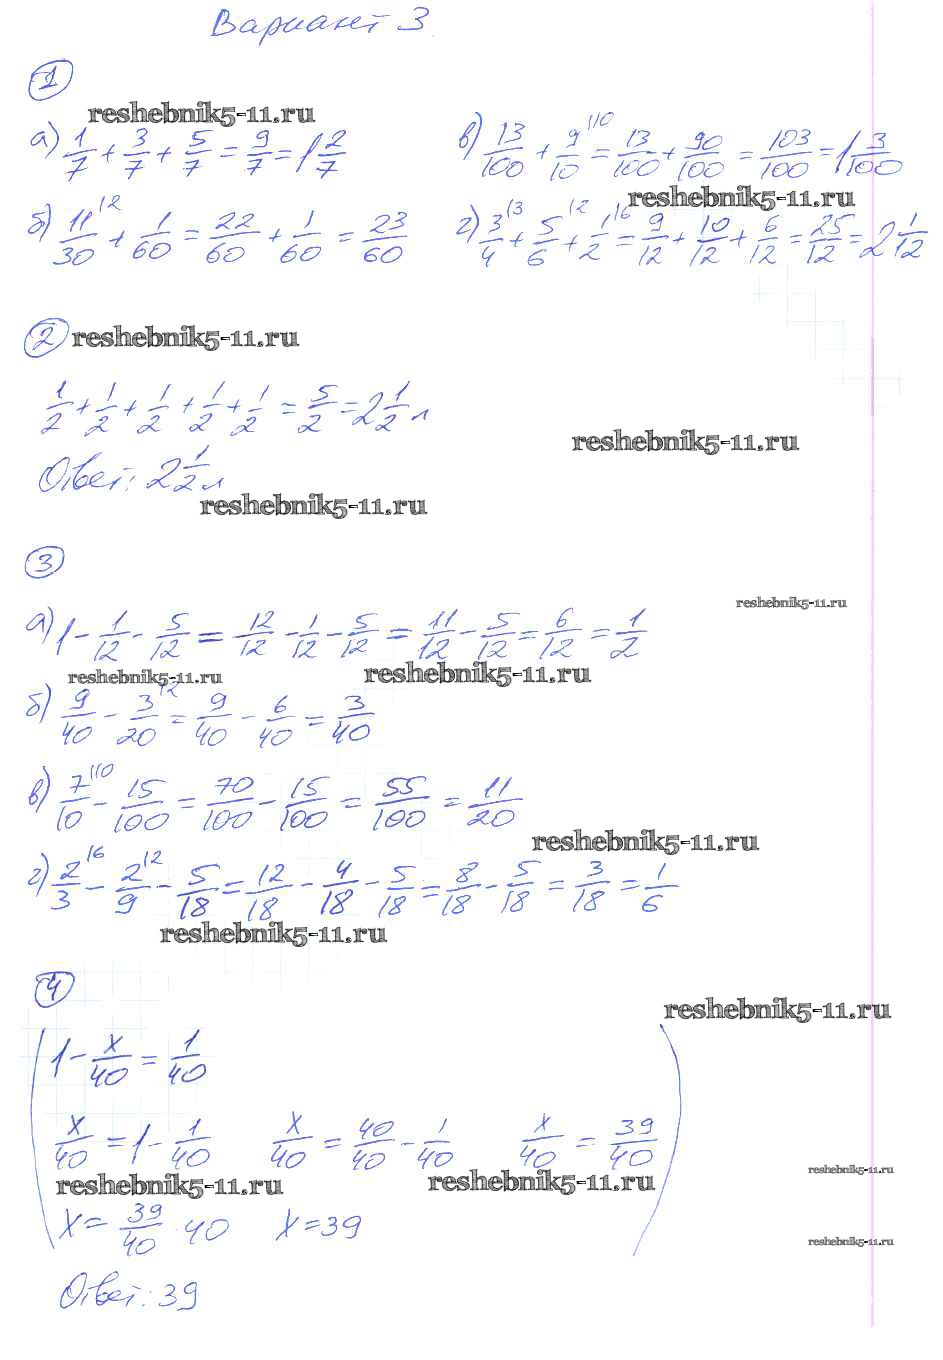 Вариант 3
1
reshebnik5-11.ru
а) 1/7 + 3/7 + 5/7 = 9/7 = 1 2/7
в) 13/100 + 9/10 |10 = 13/100 + 90/100 = 103/100 = 1 3/100
reshebnik5-11.ru
б) 11/30 |2 + 1/60 = 22/60 + 1/60 = 23/60
г) 3/4 |3 + 5/6 |2 + 1/2 |6 = 9/12 + 10/12 + 6/12 = 25/12 = 2 1/12
2 reshebnik5-11.ru
1/2 + 1/2 + 1/2 + 1/2 + 1/2 = 5/2 = 2 1/2 л
reshebnik5-11.ru
Ответ: 2 1/2 л
reshebnik5-11.ru
3
reshebnik5-11.ru
а) 1 - 1/12 - 5/12 = 12/12 - 1/12 - 5/12 = 11/12 - 5/12 = 6/12 = 1/2
reshebnik5-11.ru reshebnik5-11.ru
б) 9/40 - 3/20 |2 = 9/40 - 6/40 = 3/40
в) 7/10 |10 - 15/100 = 70/100 - 15/100 = 55/100 = 11/20
reshebnik5-11.ru
г) 2/3 |6 - 2/9 |2 - 5/18 = 12/18 - 4/18 - 5/18 = 8/18 - 5/18 = 3/18 = 1/6
reshebnik5-11.ru
4
reshebnik5-11.ru
1 - x/40 = 1/40
x/40 = 1 - 1/40 x/40 = 40/40 - 1/40 x/40 = 39/40
reshebnik5-11.ru reshebnik5-11.ru reshebnik5-11.ru
x = 39/40 · 40 x = 39
reshebnik5-11.ru
Ответ: 39